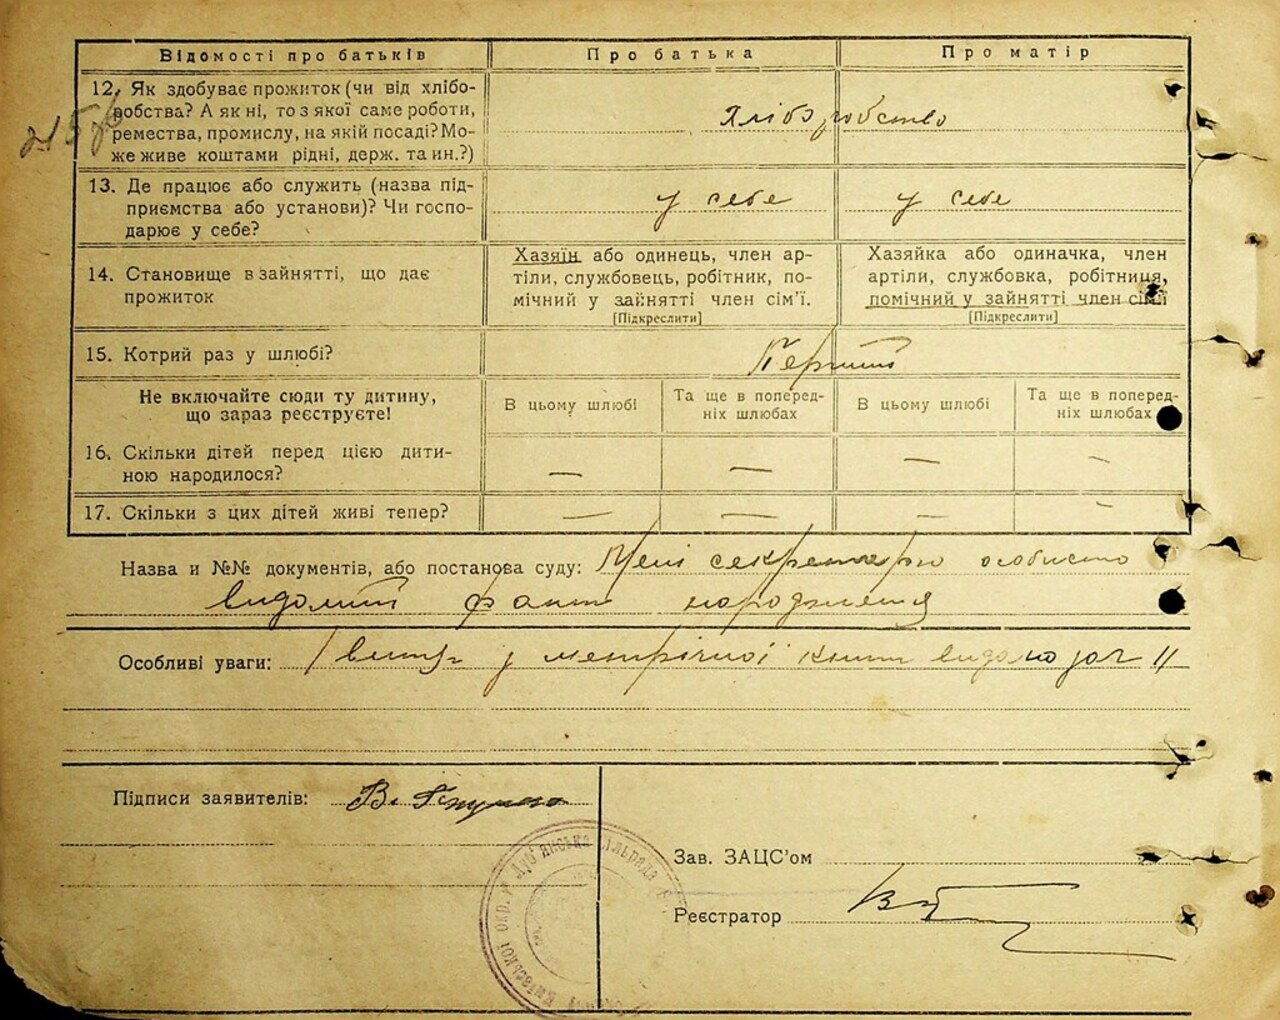 Відомості про батьків
Про батька
Про матір
12. Як здобуває прожиток (чи від хлібо-
робства? А як ні, то з якої саме роботи,
ремества, промислу, на якій посаді? Мо-
же живе коштами рідні, держ. та ин.?)
Хліборобство
13. Де працює або служить (назва під-
приємства або установи)? Чи госпо-
дарює у себе?
у себе
у себе
14. Становище в зайнятті, що дає
прожиток
Хазяїн або одинець, член ар-
тіли, службовець, робітник, по-
мічний у зайнятті член сім'ї.
[Підкреслити]
Хазяйка або одиначка, член
артіли, службовка, робітниця,
помічний у зайнятті член сім'ї
[Підкреслити]
15. Котрий раз у шлюбі?
Перший
Не включайте сюди ту дитину,
що зараз реєструєте!
В цьому шлюбі
Та ще в поперед-
ніх шлюбах
В цьому шлюбі
Та ще в поперед-
ніх шлюбах
16. Скільки дітей перед цією дити-
ною народилося?
— — — —
17. Скільки з цих дітей живі тепер?
— — — —
Назва и №№ документів, або постанова суду: Мені секретарю особисто
видомий факт народження
Особливі уваги: /витяг з метричної книги
Підписи заявителів:
Зав. ЗАЦС'ом
Реєстратор
Київської окр.
Дуб'янська сільрада